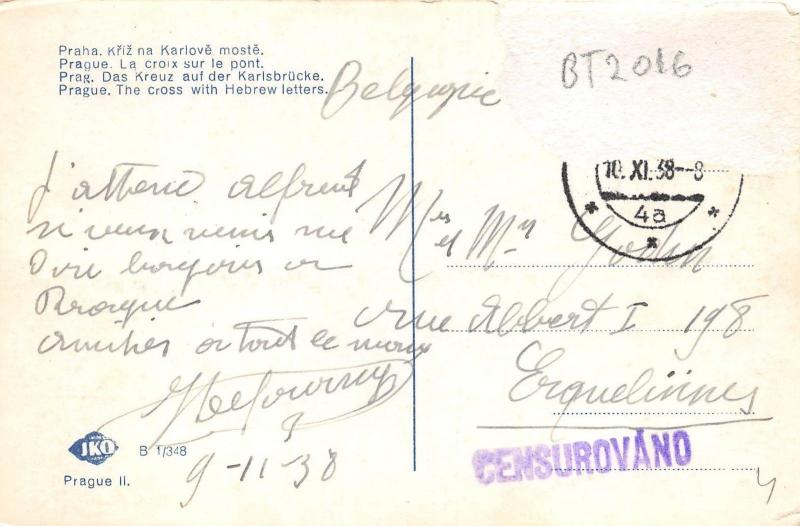 Praha. Kříž na Karlově mostě.
Prague. La croix sur le pont.
Prag. Das Kreuz auf der Karlsbrücke.
Prague. The cross with Hebrew letters.
Belgique
BT2016
10. XI. 38--8
4a
J'attend Alfred
si veux venir me
dire bonjour a
Prague
amitiés a tout le monde
9-11-38
JKO
B 1/348
Prague II.
et
rue Albert I 198
Erquelinnes
CENSUROVÁNO